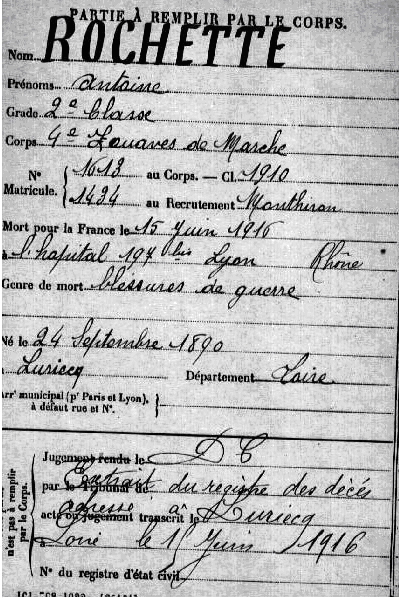 PARTIE À REMPLIR PAR LE CORPS.
Nom ROCHETTE
Prénoms Antoine
Grade 2e Classe
Corps 4e Zouaves de Marche
N° 1613 au Corps. — Cl. 1910
Matricule. 1434 au Recrutement Montbrison
Mort pour la France le 15 Juin 1916
à l'hopital 197 bis Lyon Rhône
Genre de mort blessures de guerre
Né le 24 Septembre 1890
à Luriecq Département Loire
Arr' municipal (p' Paris et Lyon),
à défaut rue et N°.
n'est pas à remplir
par le Corps.
Jugement rendu le D C
par le Tribunal de Extrait du registre des décès
acte ou jugement transcrit le adressé à Luriecq
à Loire le 15 Juin 1916
N° du registre d'état civil